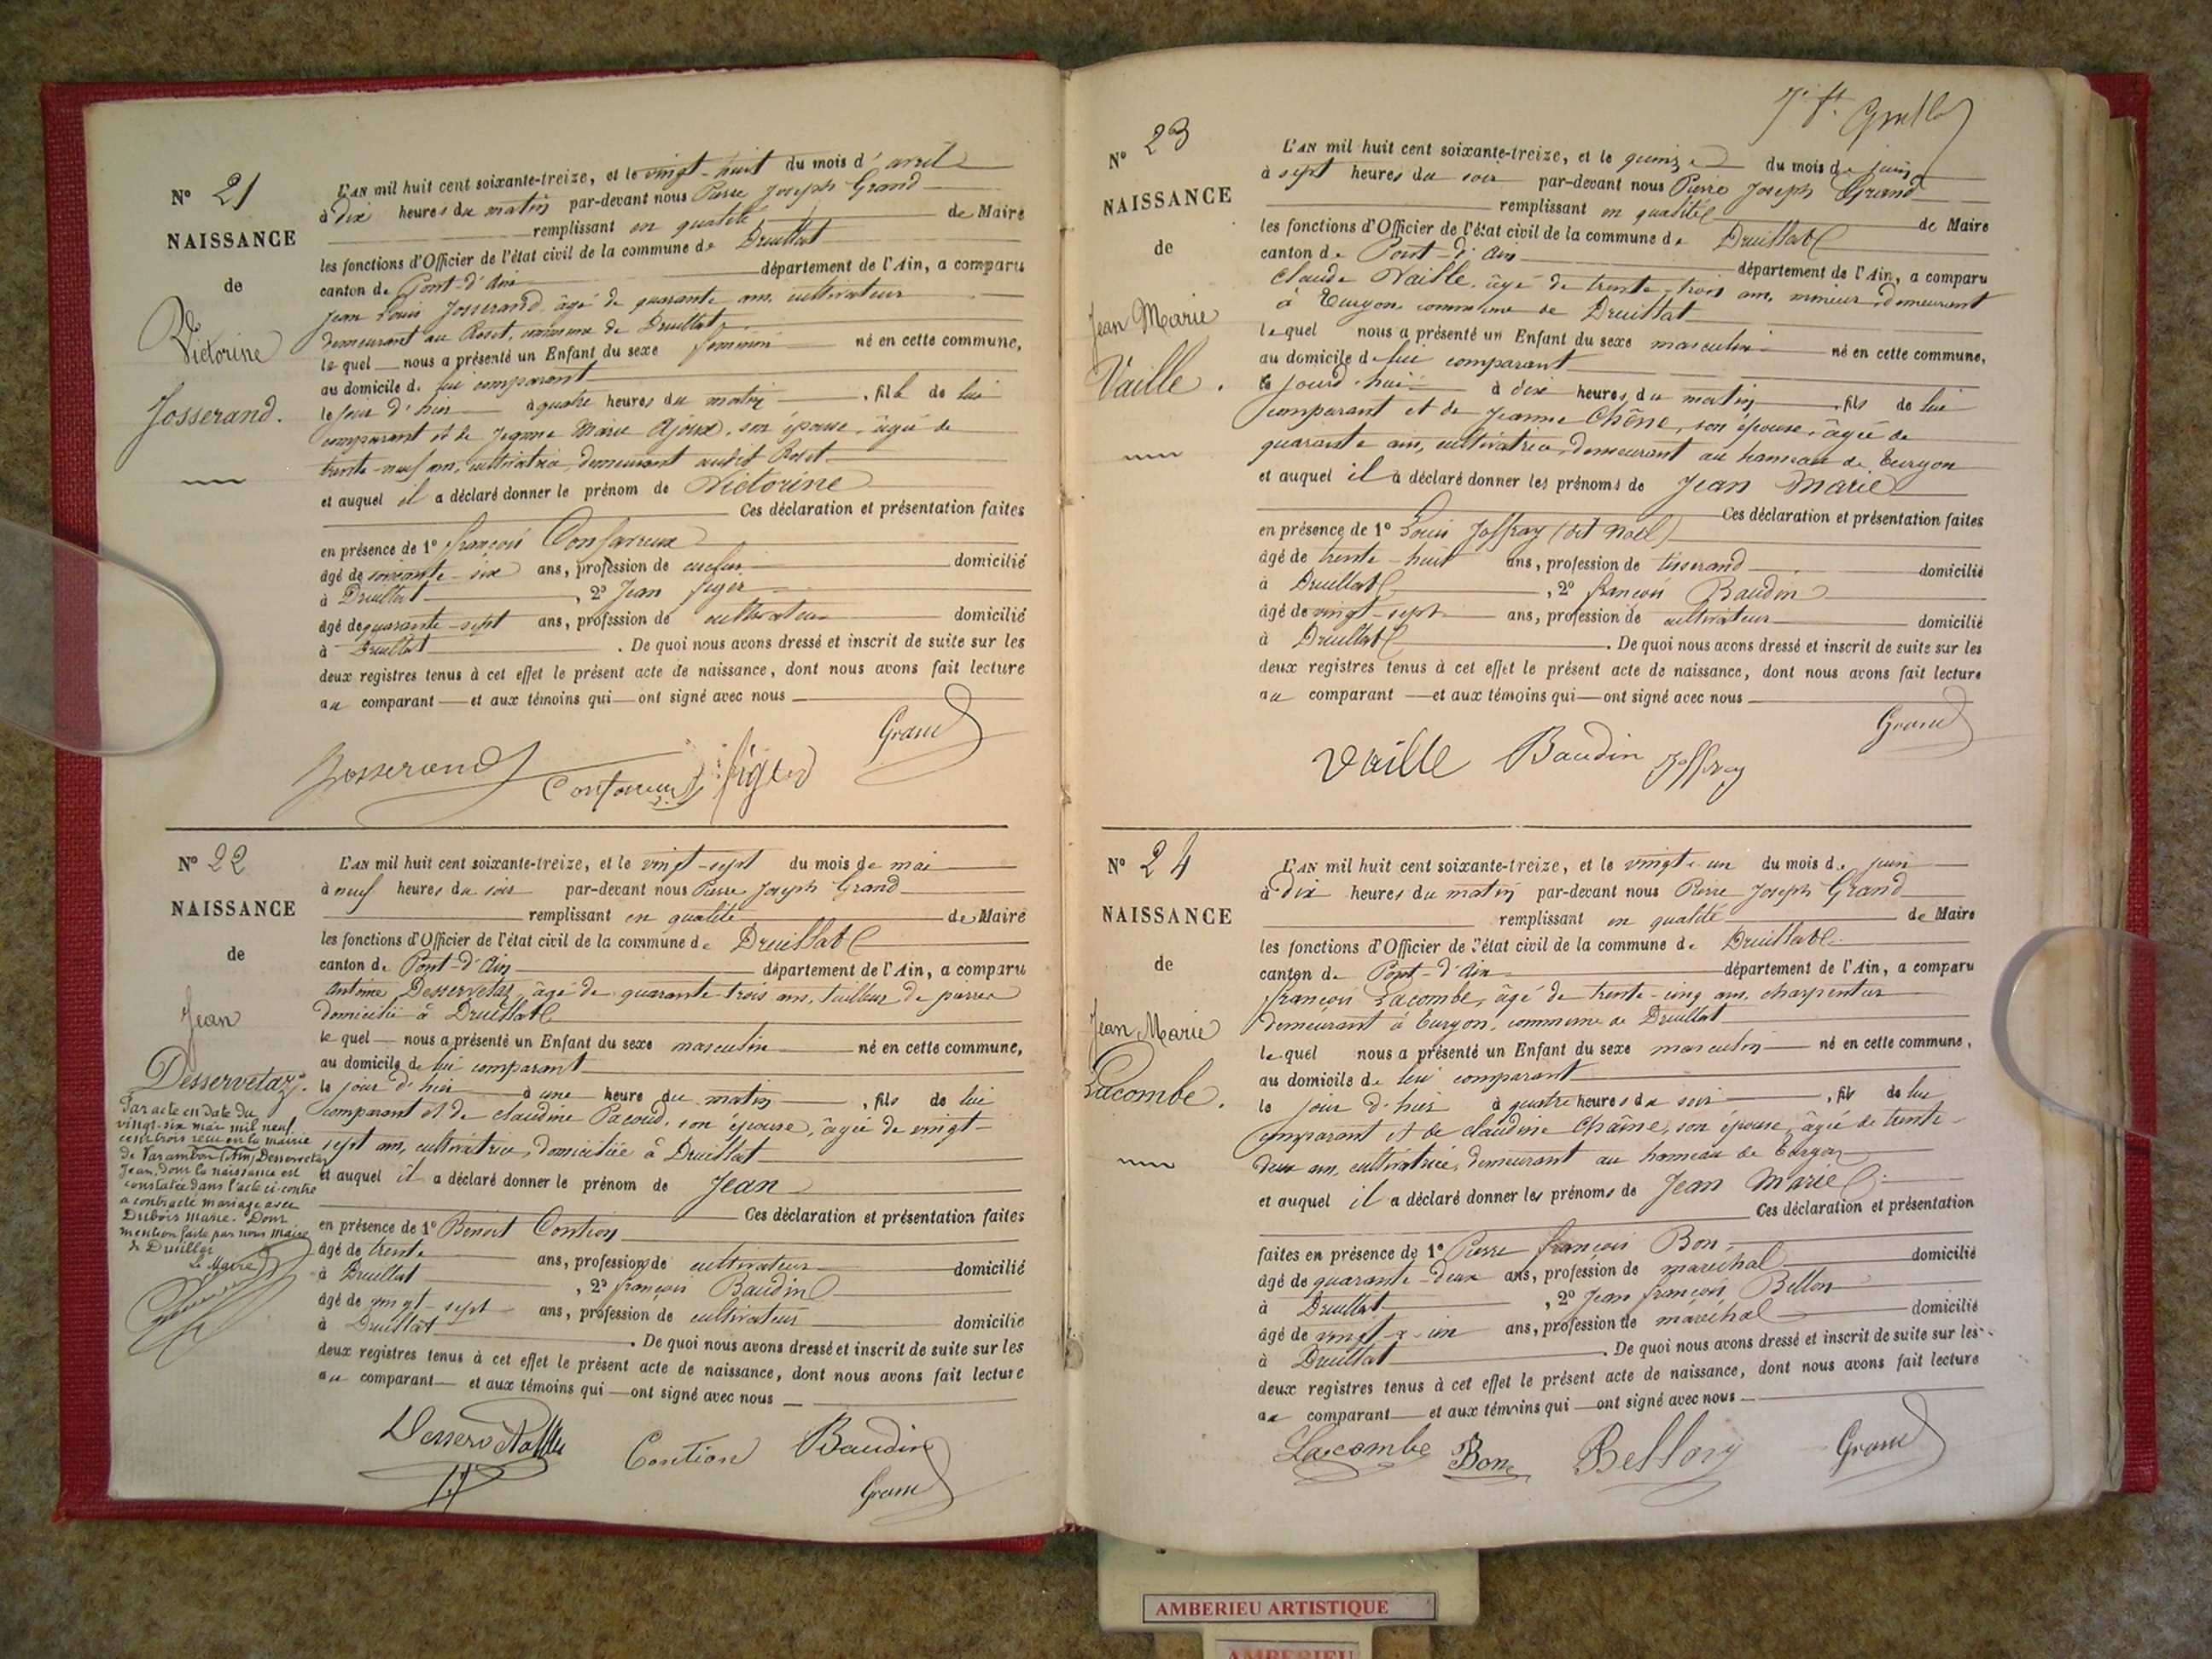 N° 21
NAISSANCE
de
Victorine
Josserand.
L'AN mil huit cent soixante-treize, et le vingt-huit du mois d'avril
à dix heures du matin par-devant nous Pierre Joseph Grand
remplissant en qualité de Maire
les fonctions d'Officier de l'état civil de la commune de Druillat
canton de Pont-d'Ain département de l'Ain, a comparu
Jean Louis Josserand, âgé de quarante ans, cultivateur
demeurant au Roset, commune de Druillat
lequel nous a présenté un Enfant du sexe féminin né en cette commune,
au domicile de lui comparant
le jour d'hier à quatre heures du matin, fille de lui
comparant et de Jeanne Marie Ajoux, son épouse, âgée de
trente-neuf ans, cultivatrice, demeurant audit Roset
et auquel il a déclaré donner le prénom de Victorine
Ces déclaration et présentation faites
en présence de 1° françois
âgé de soixante-six ans, profession de domicilié
à Druillat, 2° Jean figer
âgé de quarante-sept ans, profession de cultivateur domicilié
à Druillat. De quoi nous avons dressé et inscrit de suite sur les
deux registres tenus à cet effet le présent acte de naissance, dont nous avons fait lecture
au comparant et aux témoins qui ont signé avec nous
Grand
Josserand figer
N° 22
NAISSANCE
de
Jean
Desservetaz.
Par acte en date du
vingt-six mai mil neuf
cent trois reçu en la mairie
de Varambon (Ain) Desservetaz
Jean, dont la naissance est
constatée dans l'acte ci-contre
a contracté mariage avec
Dubois Marie. Dont
mention faite par nous Maire
de Druillat
Le Maire
L'AN mil huit cent soixante-treize, et le vingt-sept du mois de mai
à neuf heures du soir par-devant nous Pierre Joseph Grand
remplissant en qualité de Maire
les fonctions d'Officier de l'état civil de la commune de Druillat
canton de Pont-d'Ain département de l'Ain, a comparu
Antoine Desservetaz, âgé de quarante-trois ans, tailleur de pierre
domicilié à Druillat
lequel nous a présenté un Enfant du sexe masculin né en cette commune,
au domicile de lui comparant
le jour d'hier à une heure du matin, fils de lui
comparant et de claudine Pacoud, son épouse, âgée de vingt-
sept ans, cultivatrice, domiciliée à Druillat
et auquel il a déclaré donner le prénom de Jean
Ces déclaration et présentation faites
en présence de 1° Benoit Contion
âgé de trente ans, profession de cultivateur domicilié
à Druillat, 2° françois Baudin
âgé de vingt-sept ans, profession de cultivateur domicilié
à Druillat. De quoi nous avons dressé et inscrit de suite sur les
deux registres tenus à cet effet le présent acte de naissance, dont nous avons fait lecture
au comparant et aux témoins qui ont signé avec nous
Contion Baudin
Grand
N° 23
NAISSANCE
de
Jean Marie
Vaille.
L'AN mil huit cent soixante-treize, et le quinze du mois de juin
à sept heures du soir par-devant nous Pierre Joseph Grand
remplissant en qualité de Maire
les fonctions d'Officier de l'état civil de la commune de Druillat
canton de Pont-d'Ain département de l'Ain, a comparu
Claude Vaille, âgé de trente-trois ans, mineur, demeurant
à Turgon commune de Druillat
lequel nous a présenté un Enfant du sexe masculin né en cette commune,
au domicile de lui comparant
ce jourd'hui à dix heures du matin, fils de lui
comparant et de Jeanne Chêne, son épouse, âgée de
quarante ans, cultivatrice, demeurant au hameau de Turgon
et auquel il a déclaré donner les prénoms de Jean Marie
Ces déclaration et présentation faites
en présence de 1° Louis Joffray (dit Noël)
âgé de trente-huit ans, profession de tisserand domicilié
à Druillat, 2° françois Baudin
âgé de vingt-sept ans, profession de cultivateur domicilié
à Druillat. De quoi nous avons dressé et inscrit de suite sur les
deux registres tenus à cet effet le présent acte de naissance, dont nous avons fait lecture
au comparant et aux témoins qui ont signé avec nous
Grand
Vaille Baudin Joffray
N° 24
NAISSANCE
de
Jean Marie
Lacombe.
L'AN mil huit cent soixante-treize, et le vingt-un du mois de juin
à dix heures du matin par-devant nous Pierre Joseph Grand
remplissant en qualité de Maire
les fonctions d'Officier de l'état civil de la commune de Druillat
canton de Pont-d'Ain département de l'Ain, a comparu
françois Lacombe, âgé de trente-cinq ans, charpentier
demeurant à Turgon, commune de Druillat
lequel nous a présenté un Enfant du sexe masculin né en cette commune,
au domicile de lui comparant
le jour d'hier à quatre heures du soir, fils de lui
comparant et de claudine Chaîne, son épouse, âgée de trente-
deux ans, cultivatrice, demeurant au hameau de Turgon
et auquel il a déclaré donner les prénoms de Jean Marie
Ces déclaration et présentation
faites en présence de 1° Pierre françois Bon,
âgé de quarante-deux ans, profession de maréchal domicilié
à Druillat, 2° Jean françois Bellon
âgé de vingt-un ans, profession de maréchal domicilié
à Druillat. De quoi nous avons dressé et inscrit de suite sur les
deux registres tenus à cet effet le présent acte de naissance, dont nous avons fait lecture
au comparant et aux témoins qui ont signé avec nous
Lacombe Bon Bellon Grand
AMBERIEU ARTISTIQUE
AMBERIEU